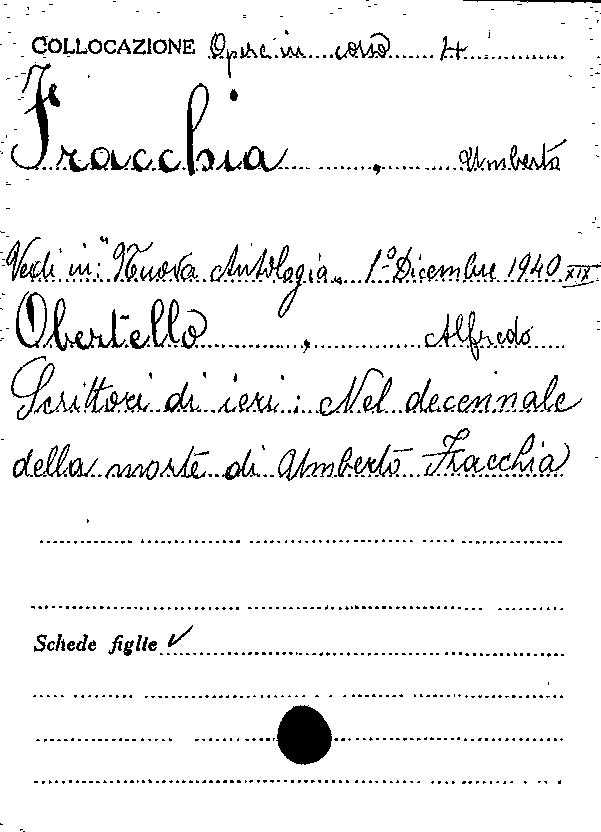 COLLOCAZIONE Opere in corso 4
Fracchia, Umberto
Vedi in: "Nuova Antologia„ 1º Dicembre 1940 XIX
Obertello, Alfredo
Scrittori di ieri: Nel decennale
della morte di Umberto Fracchia
Schede figlie ✓